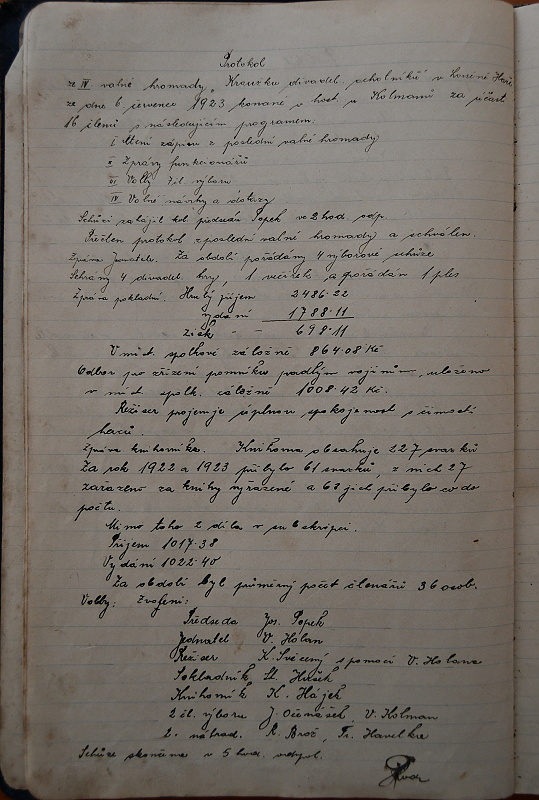 Protokol
ze IV valné hromady „Kroužku divadel. ochotníků" v Lesně Hoře
ze dne 6 července 1923 konané v host u Kolmanů za účasti
16 členů s následujícím programem.
I Čtení zápisu z poslední valné hromady
II Zprávy funkcionářů
III Volby 7 čl. výboru
IV Volné návrhy a dotazy
Schůzi zahájil kol. předseda Popek ve 2 hod. odp.
Přečten protokol z poslední valné hromady a schválen.
Zpráva jednatele. Za období pořádány 4 výborové schůze
Sehrány 4 divadel. hry, 1 večírek, a pořádán 1 ples
Zpráva pokladní. Hrubý příjem 2486·22
vydání 1788·11
Zisk - - 698·11
V míst. spolkové záložně 864·08 Kč
Odbor pro zřízení pomníku padlým vojínům, uloženo
v míst. spolk. záložně 1008·42 Kč.
Režiser projevuje úplnou spokojenost s činností
herců.
Zpráva knihovníka. Knihovna obsahuje 227 svazků
Za rok 1922 a 1923 přibylo 61 svazků, z nich 27
zařazeno za knihy vyřazené a 68 jich přibylo co do
počtu.
Mimo toho 2 díla v subskripci.
Příjem 1017·38
Vydání 1022·40
Za období byl průměrný počet čtenářů 36 osob.
Volby: Zvoleni:
Předseda Jos. Popek
Jednatel V. Holan
Režiser K. Svěcený s pomocí V. Holana
Pokladník St. Hušek
Knihovník K. Hájek
2 čl. výboru J. Očenášek, V. Kolman
2. náhrad. R. Brož, Fr. Havelka
Schůze skončena v 5 hod. odpol.